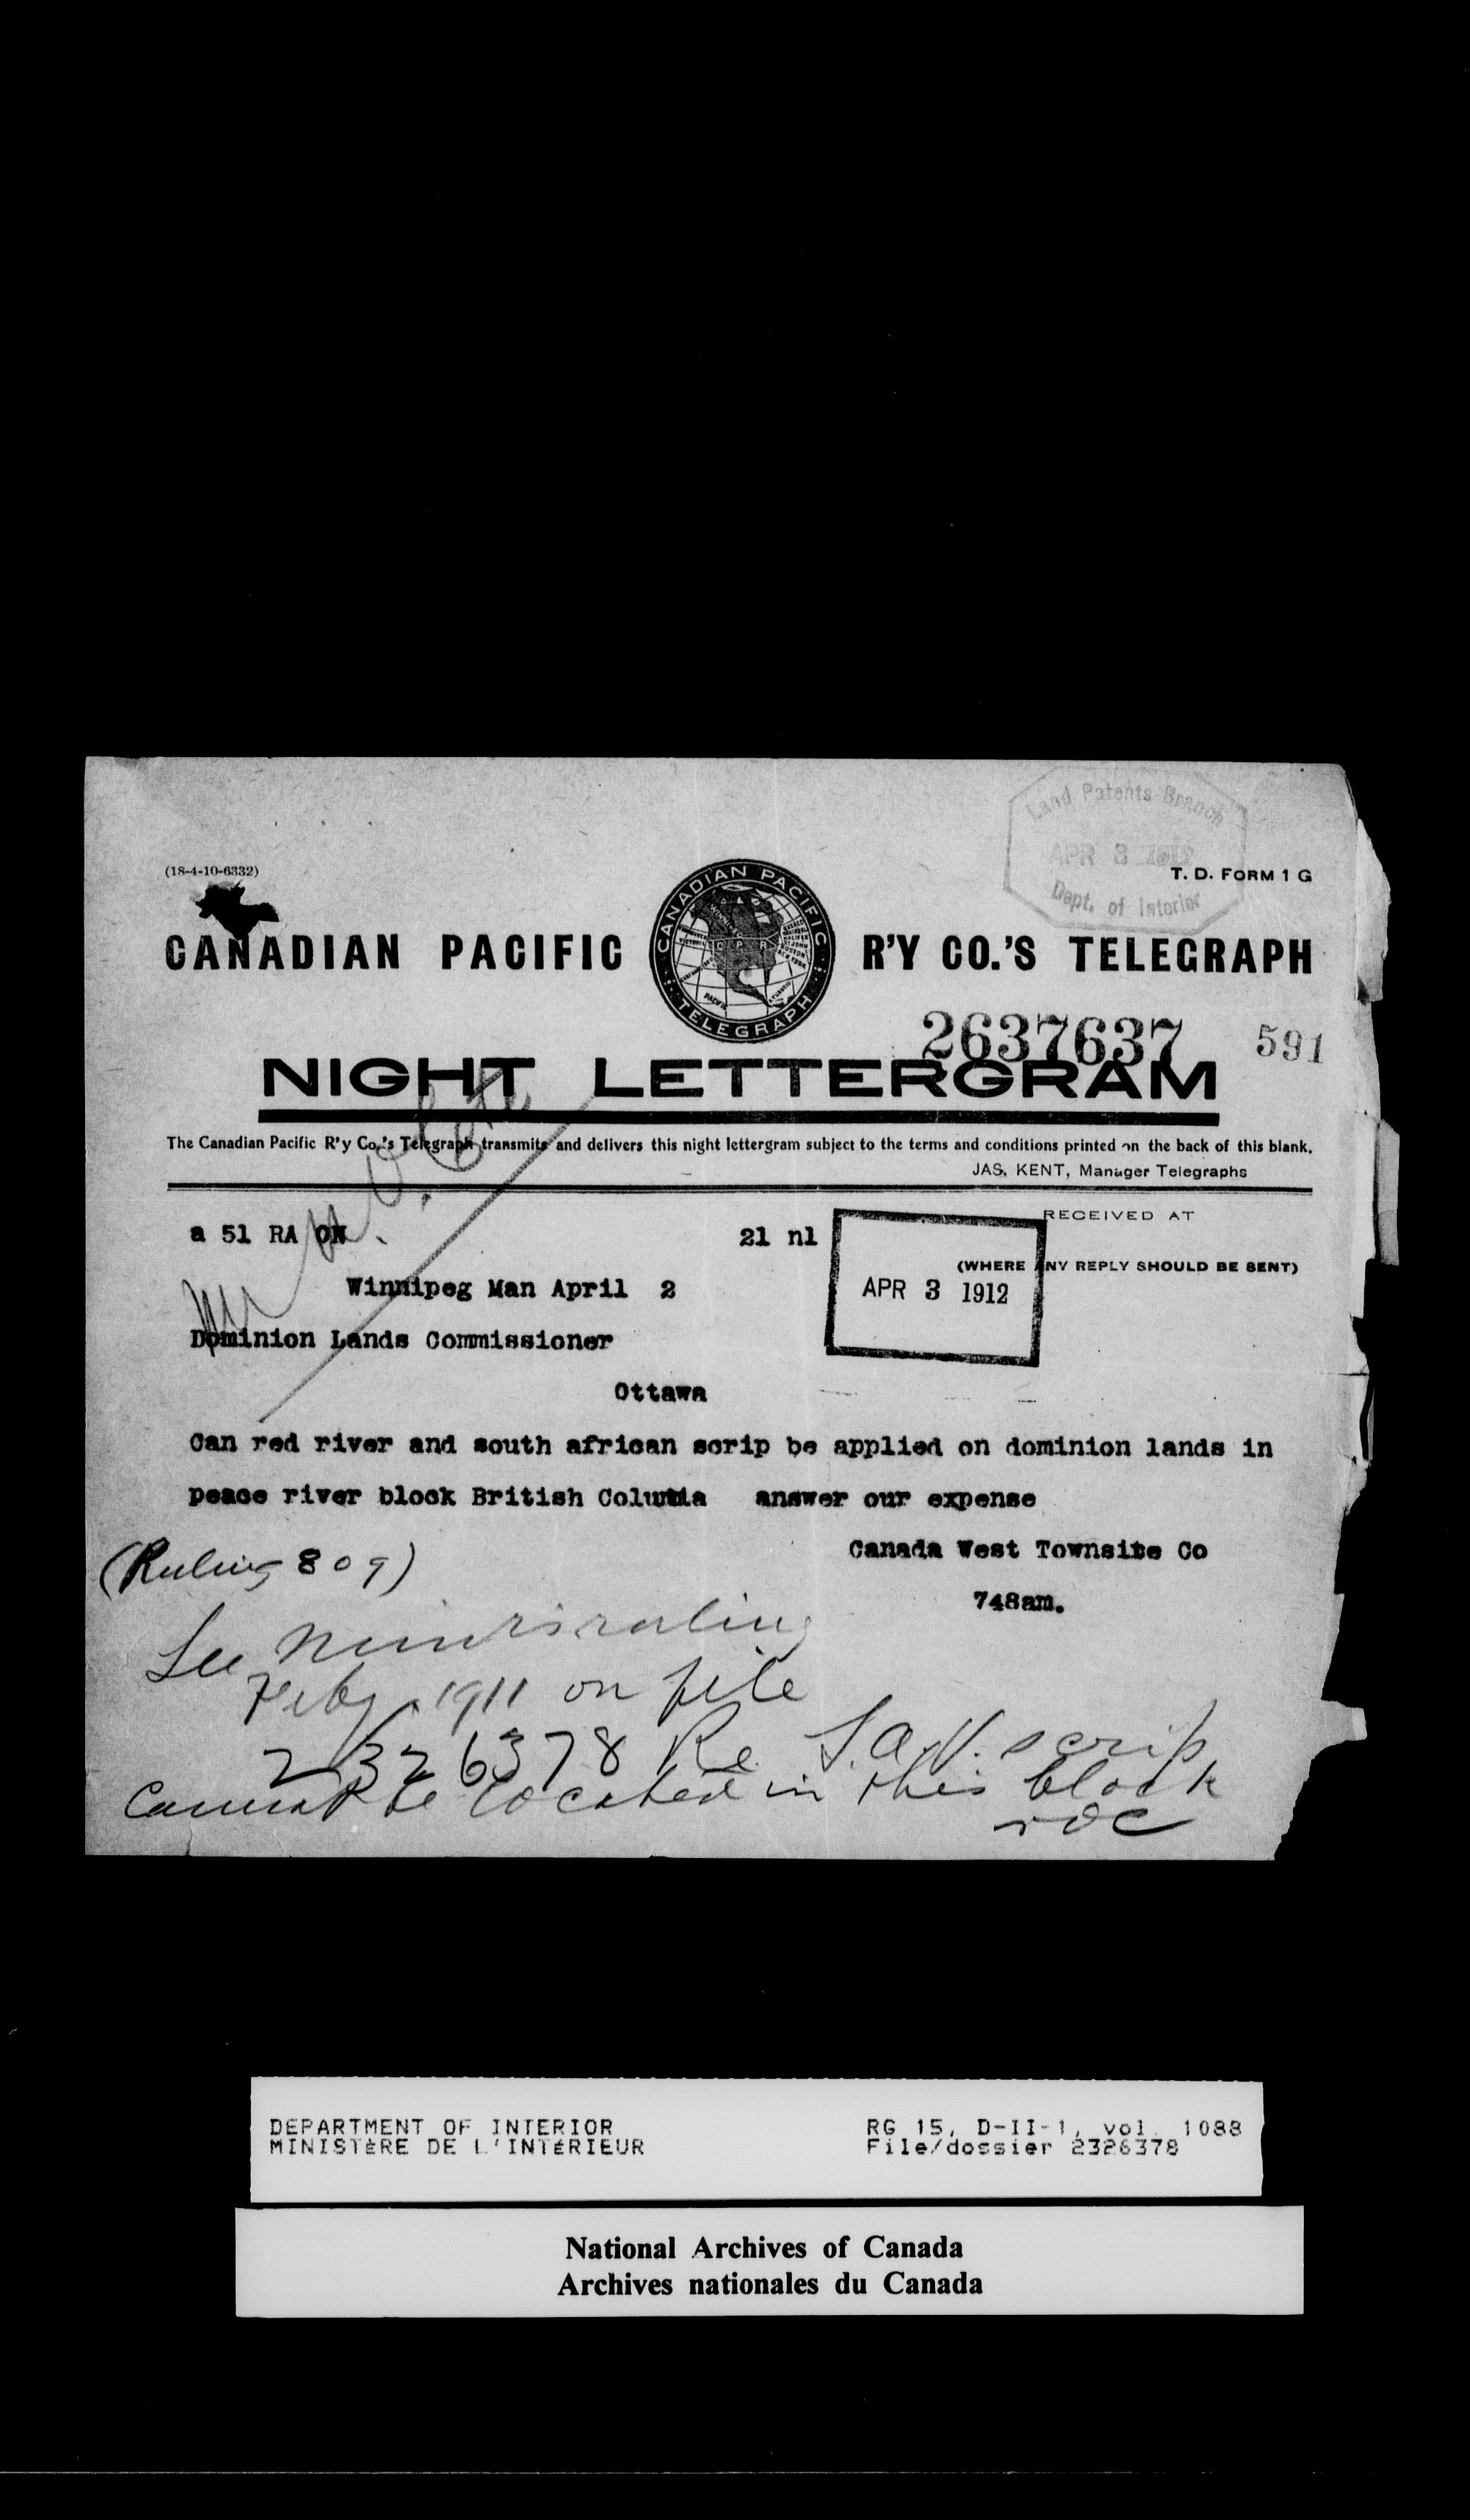 Land Patents Branch
APR 3 1912
Dept. of Interior
(18-4-10-6332)
T. D. FORM 1 G
CANADIAN PACIFIC R'Y CO.'S TELEGRAPH
CANADIAN PACIFIC
C P R
PACIFIC
TELEGRAPH
2637637 591
NIGHT LETTERGRAM
The Canadian Pacific R'y Co.'s Telegraph transmits and delivers this night lettergram subject to the terms and conditions printed on the back of this blank.
JAS. KENT, Manager Telegraphs
RECEIVED AT
a 51 RA ON 21 nl
(WHERE ANY REPLY SHOULD BE SENT)
APR 3 1912
Winnipeg Man April 2
Dominion Lands Commissioner
Ottawa
Can red river and south african scrip be applied on dominion lands in
peace river block British Columbia answer our expense
Canada West Townsite Co
748am.
(Ruling 809)
See ruling
Feby 1911 on file
2326378 Re S.A.V. scrip
Cannot be located in this block
DEPARTMENT OF INTERIOR
MINISTÈRE DE L'INTÉRIEUR
RG 15, D-II-1, vol. 1088
File/dossier 2326378
National Archives of Canada
Archives nationales du Canada